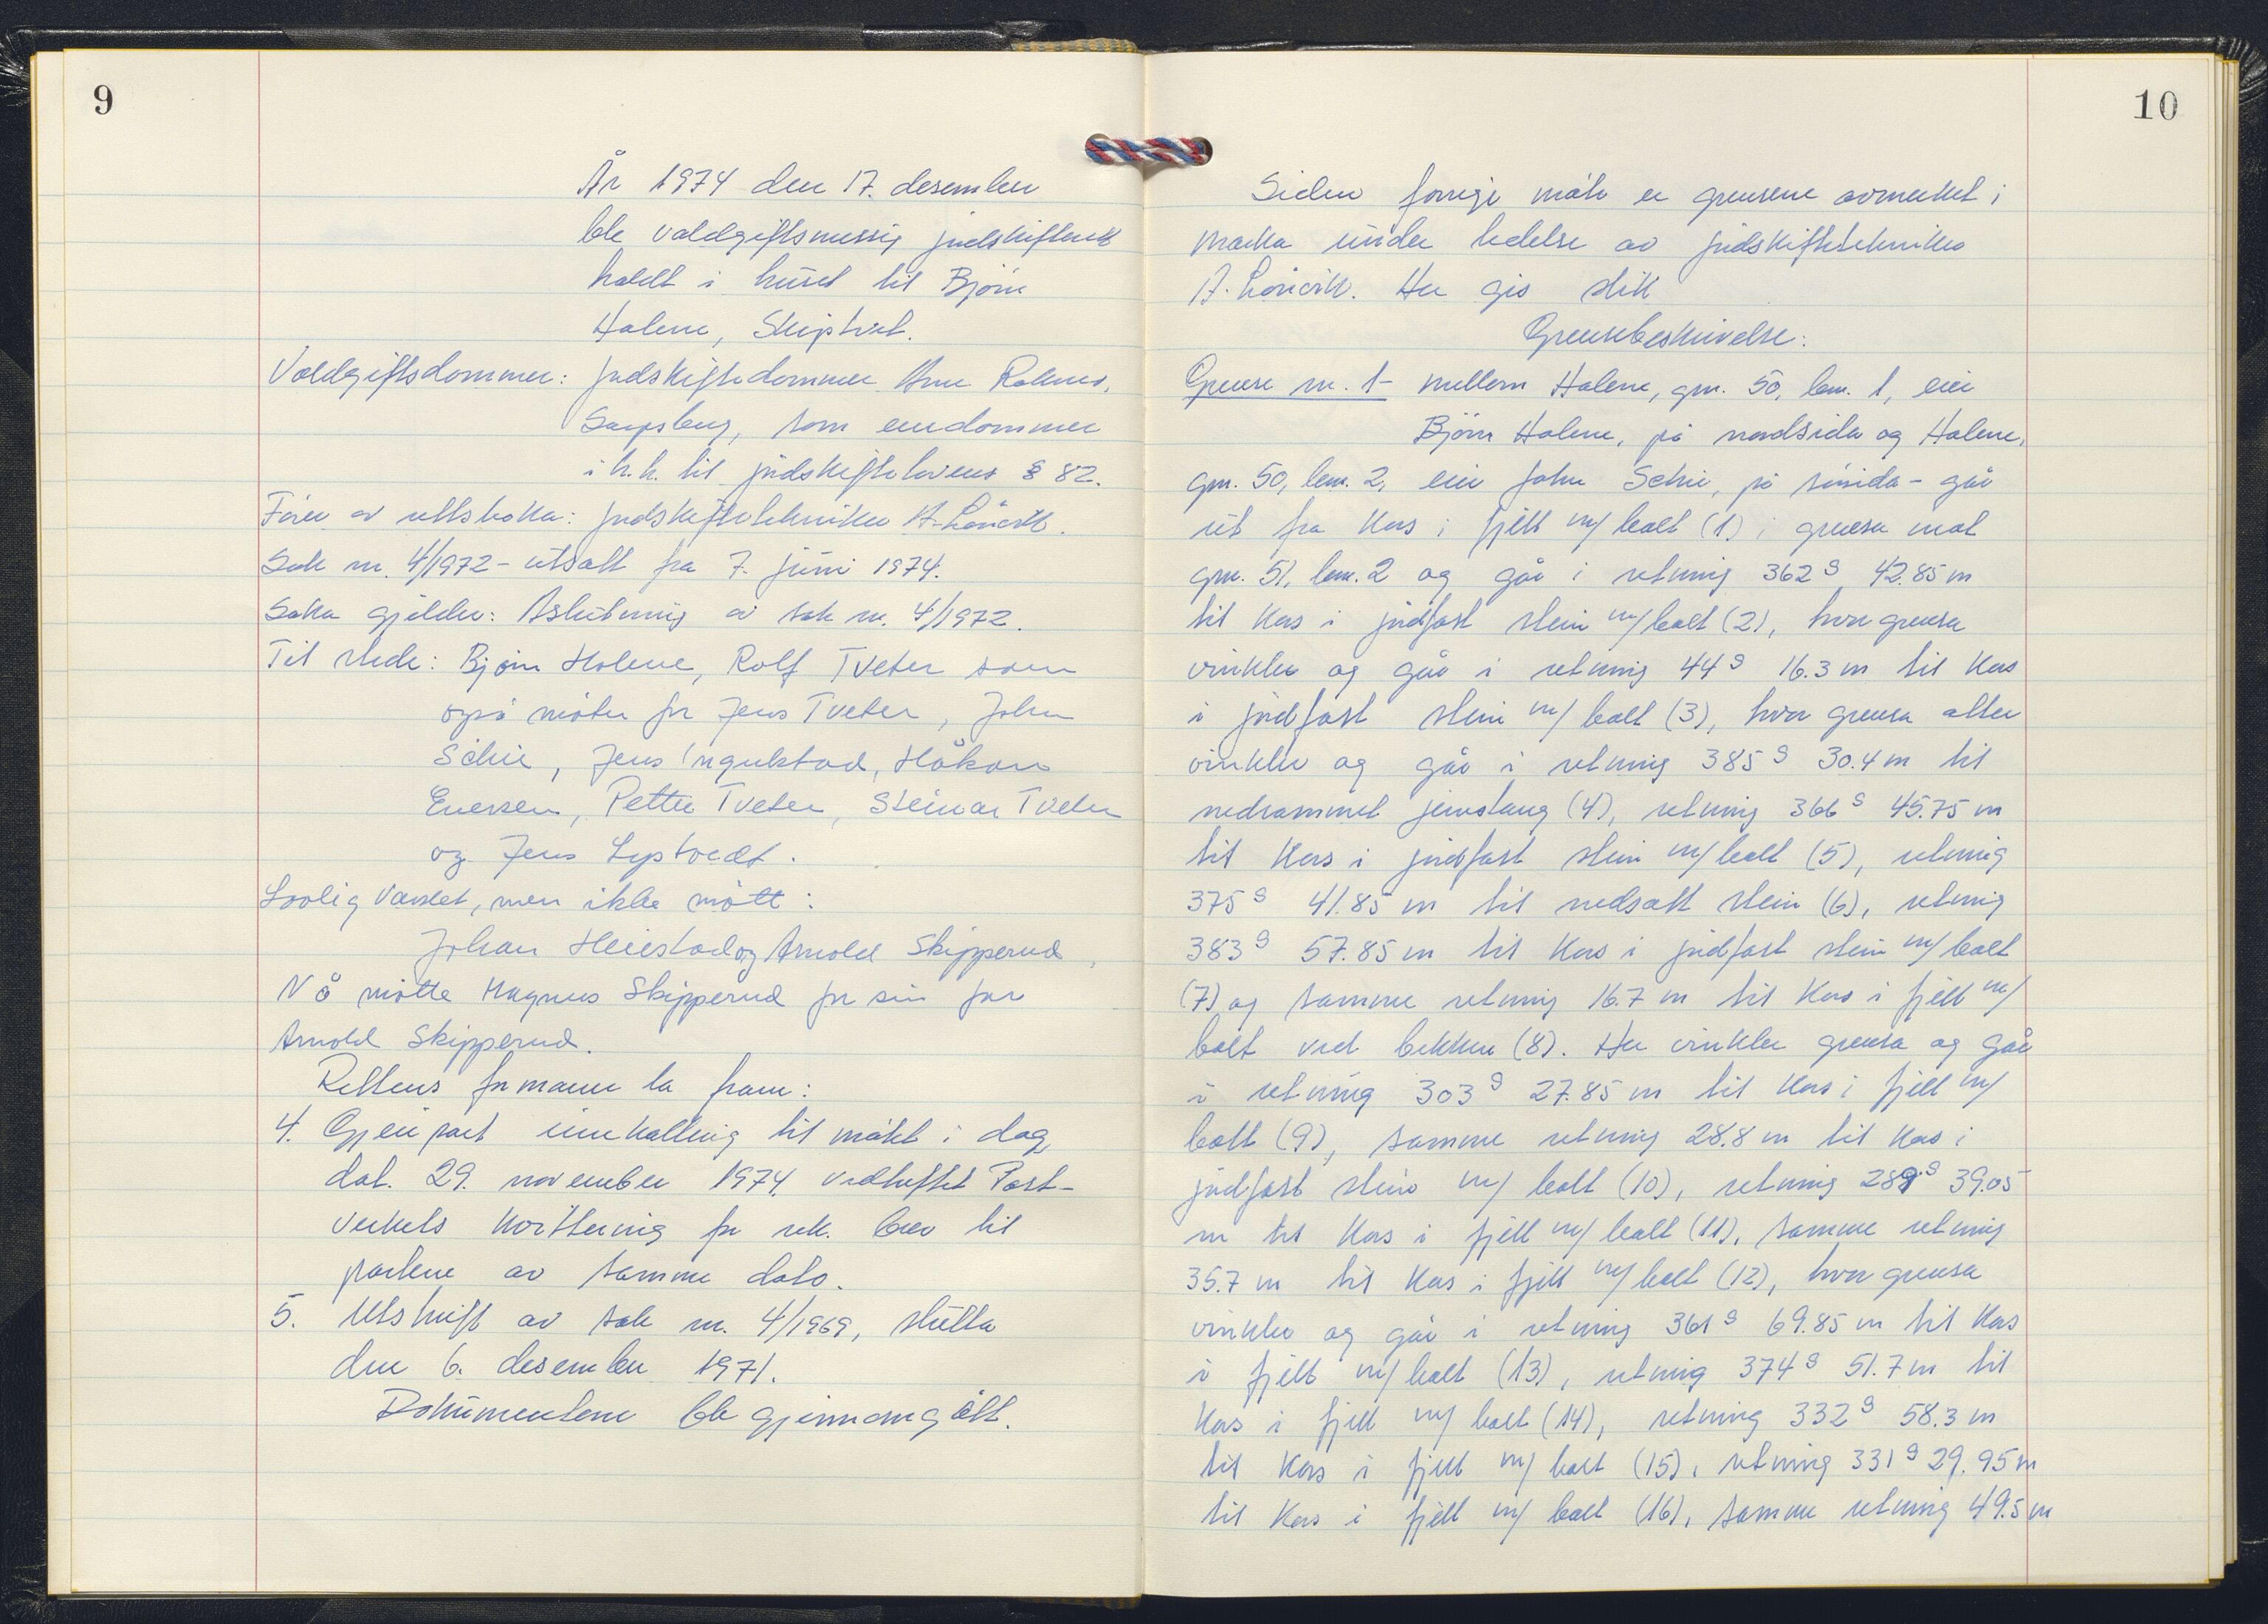 9
År 1974 den 17. desember
ble voldgiftsmessig jordskifterett
holdt i huset til Bjørn
Holene, Skiptvet.
Voldgiftsdommer: Jordskiftedommer Arne
Sarpsborg, som enedommer
i h.h. til jordskiftelovens § 82.
Fører av rettsboka: Jordskiftetekniker A.
Sak nr. 4/1972 - utsatt fra 7. juni 1974.
Saka gjelder: Aslutning av sak nr. 4/1972.
Til stede: Bjørn Holene, Rolf Tveter som
også møter for Jens Tveter, John
Schie, Jens Ingulstad, Håkon
Evensen, Petter Tveter, Steinar Tveter
og Jens Lystvedt.
Lovlig varslet, men ikke møtt:
Johan Heiestad og Arnold Skipperud,
Nå møtte Magnus Skipperud for sin far
Arnold Skipperud.
Rettens formann la fram:
4. Gjenpart innkalling til møtet i dag,
dat. 29. november 1974, vedheftet Post-
verkets kvittering for rek. brev til
partene av samme dato.
5. Utskrift av sak nr. 4/1969, slutta
den 6. desember 1971.
Dokumentene ble gjennomgått.
10
Siden forrige møte er grensene avmerket i
marka under ledelse av jordskiftetekniker
A. Her gis slik
Grensebeskrivelse:
Grense nr. 1 - mellom Holene, gnr. 50, bnr. 1, eier
Bjørn Holene, på nordsida og Holene,
gnr. 50, bnr. 2, eier John Schie, på sørsida - går
ut fra kors i fjell m/ bolt (1) i grensa mot
gnr. 51, bnr. 2 og går i retning 362 g 42.85 m
til kors i jordfast stein m/ bolt (2), hvor grensa
vinkler og går i retning 44 g 16.3 m til kors
i jordfast stein m/ bolt (3), hvor grensa atter
vinkler og går i retning 385 g 30.4 m til
nedrammet jernstang (4), retning 366 g 45.75 m
til kors i jordfast stein m/ bolt (5), retning
375 g 41.85 m til nedsatt stein (6), retning
383 g 57.85 m til kors i jordfast stein m/ bolt
(7) og samme retning 16.7 m til kors i fjell m/
bolt ved bekken (8). Her vinkler grensa og går
i retning 303 g 27.85 m til kors i fjell m/
bolt (9), samme retning 28.8 m til kors i
jordfast stein m/ bolt (10), retning 289 g 39.05
m til kors i fjell m/ bolt (11), samme retning
35.7 m til kors i fjell m/ bolt (12), hvor grensa
vinkler og går i retning 361 g 69.85 m til kors
i fjell m/ bolt (13), retning 374 g 51.7 m til
kors i fjell m/ bolt (14), retning 332 g 58.3 m
til kors i fjell m/ bolt (15), retning 331 g 29.95 m
til kors i fjell m/ bolt (16), samme retning 49.5 m